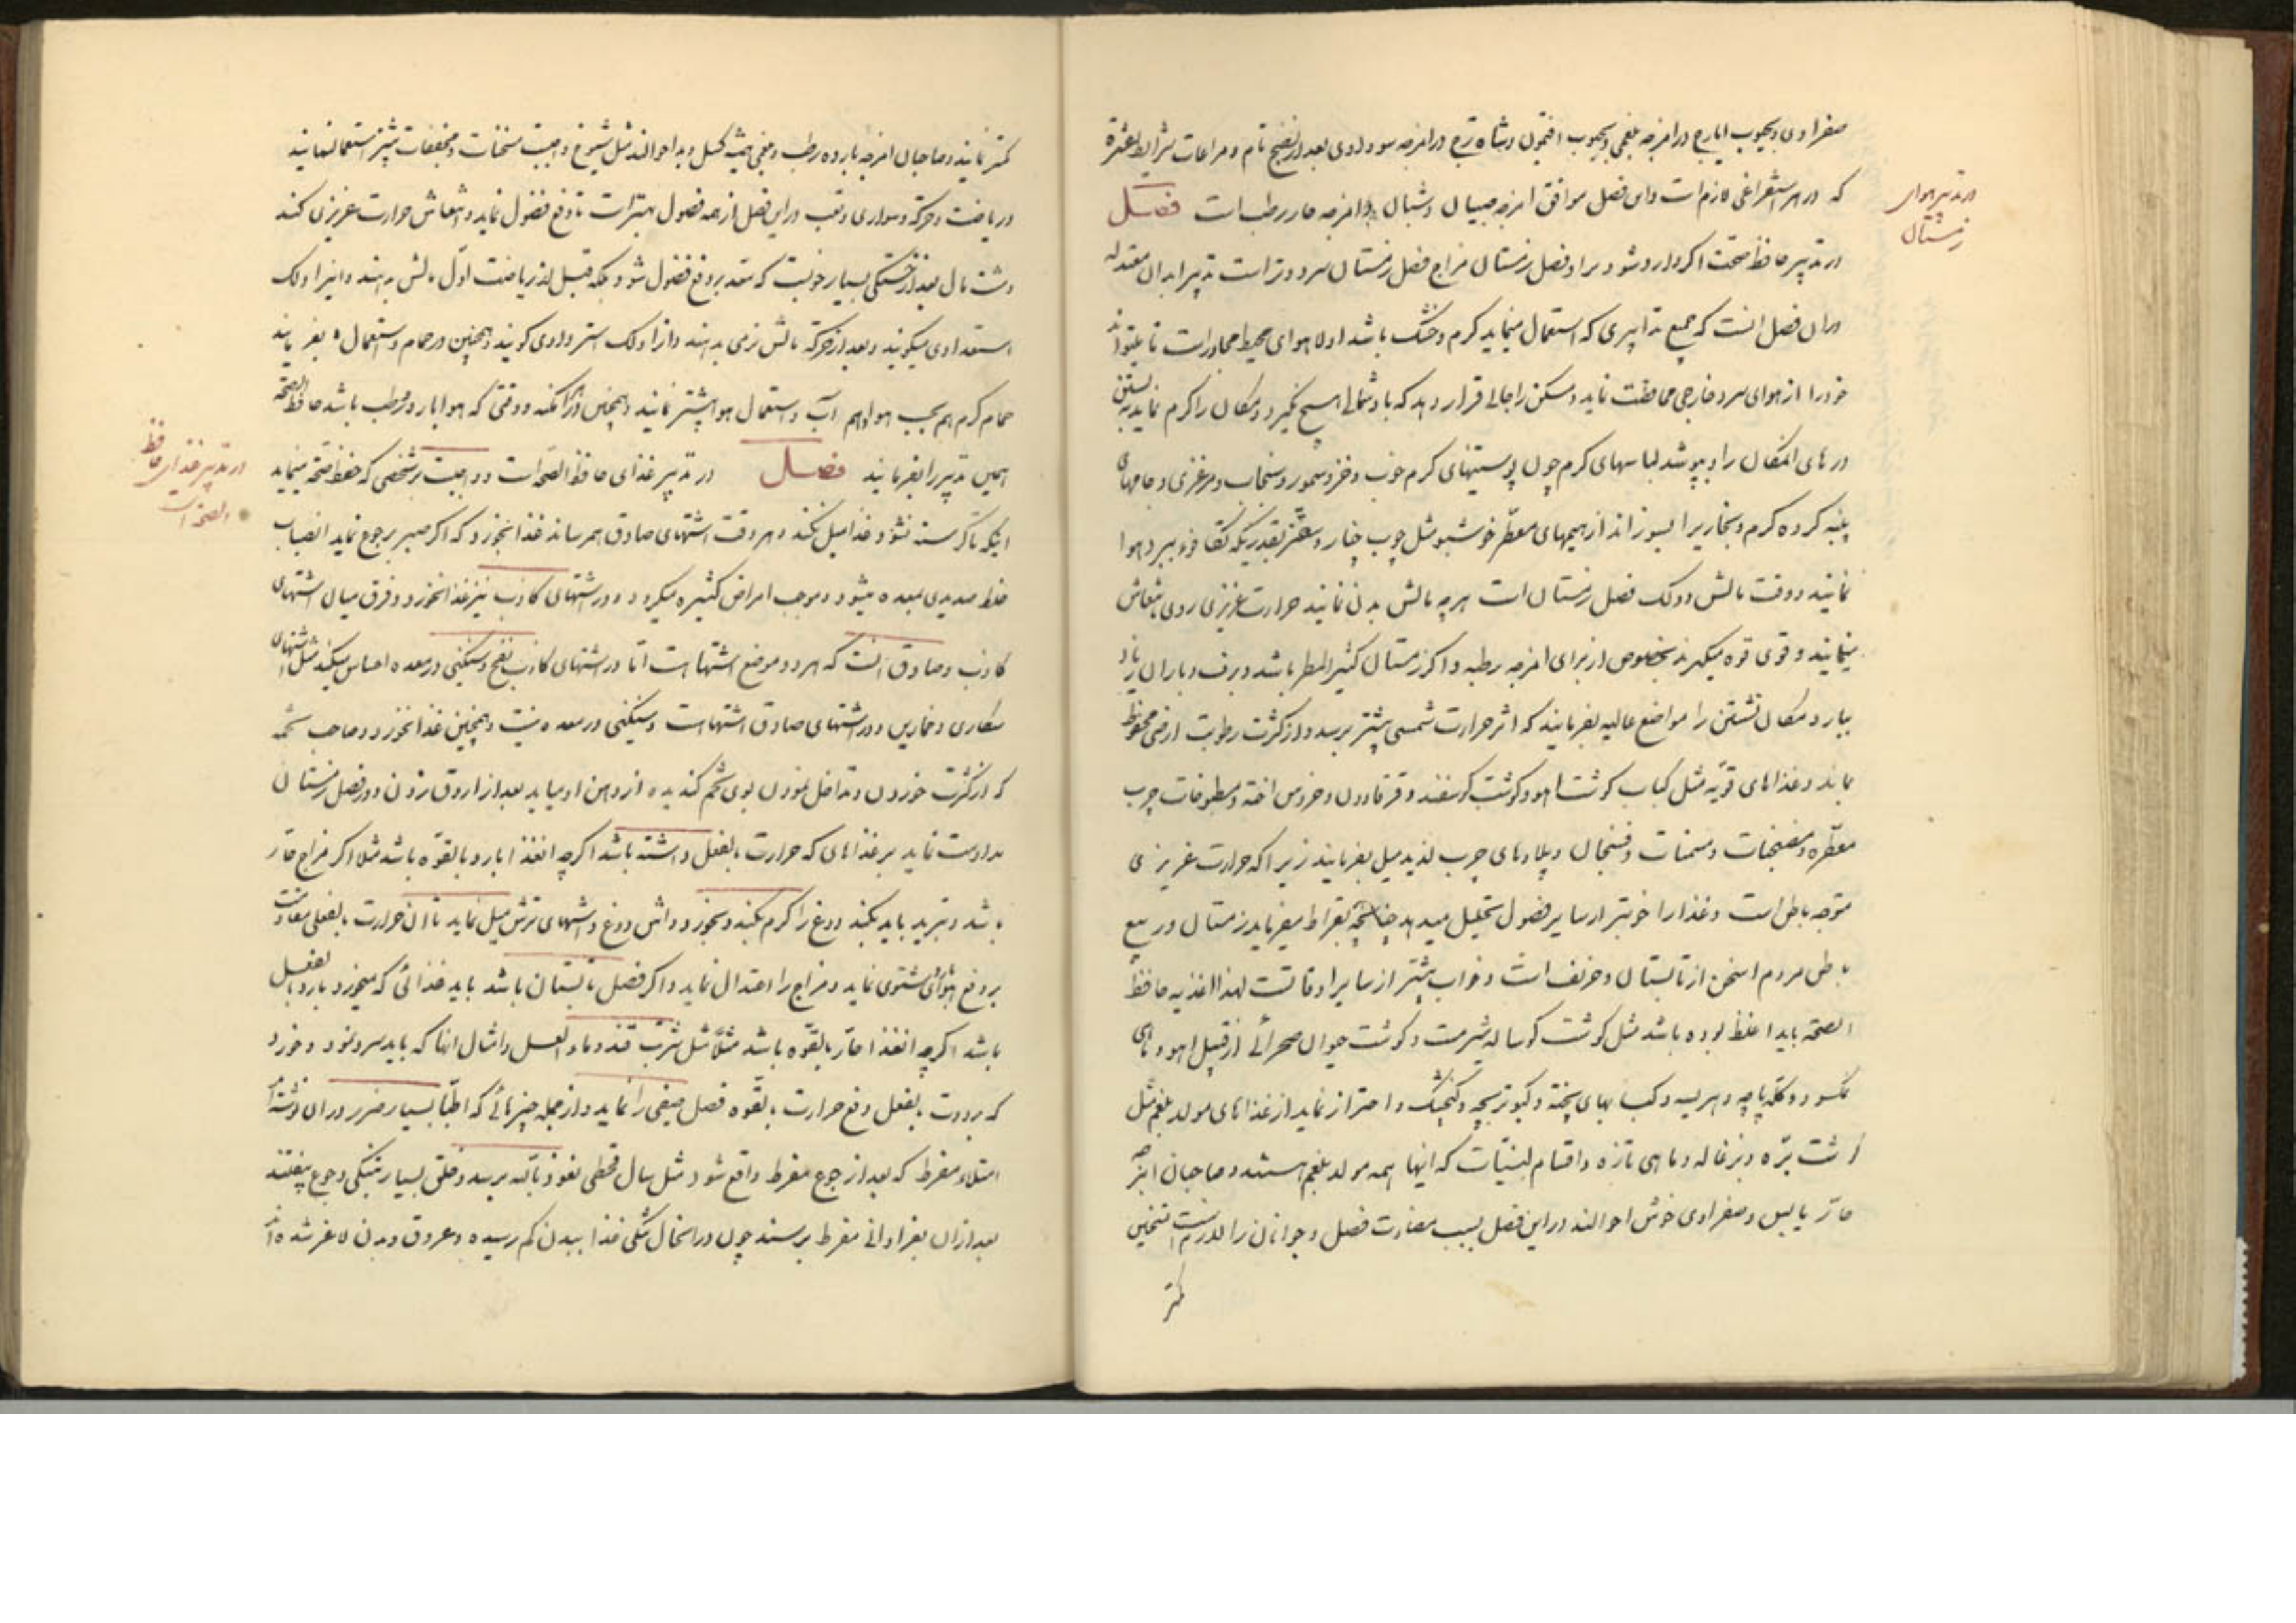 صفراوی و بحبوب ایارج در امزجه بلغمی و بحبوب افتیمون و شاه ترج در امزجه سوداوی بعد از نضج تام و مراعات شرایط عشرة
که در هر استفراغی لازم است و این فصل موافق امزجه صبیان و شبان و امزجه حار رطب است فصل
در تدبیر هوای زمستان
در تدبیر حافظ صحت اکر وارد شود بر او فصل زمستان مزاج فصل زمستان سرد و تر است تدبیر ابدان معتدله
در ان فصل انست که جمیع تدابیری که استعمال مینماید کرم و خشک باشد اولا هوای محیط مجاور است تا بتواند
خود را از هوای سرد خارجی محافظت نماید و مسکن را جائی قرار دهد که باد شمالی هیچ نکیرد و مکان را کرم نماید به بستن
در های المکان را و بپوشد لباسهای کرم چون پوستینهای کرم خوب و خز و سمور و سنجاب و مرغزی و جامهای
پنبه کرده کرم و بخاریرا بسوزانند از هیمهای معطر خوشبو مثل چوب چنار و بقدریکه هوا
نمایند و وقت مالش و دلک فصل زمستان است هر چه مالش بدن نمایند حرارت غریزی روی بانتعاش
مینمایند و قوی قوه میکیرند بخصوص از برای امزجه رطبه و اکر زمستان کثیر المطر باشد و برف و باران زیاد
ببارد مکان نشستن را مواضع عالیه بفرمایند که اثر حرارت شمسی بیشتر برسد و از کثرت رطوبت ارضی محفوظ
بماند و غذاهای قویه مثل کباب کوشت اهو و کوشت کوسفند و قرقاول و خروس اخته و مطبوخات چرب
معطره و مسمنات و فسنجان و پلاوهای چرب لذیذ میل بفرمایند زیرا که حرارت غریزی
متوجه باطن است و غذا را خوبتر از سایر فصول تحلیل میدهد چنانچه بقراط میفرماید زمستان و ربیع
باطن مردم اسخن از تابستان و خریف است و خواب بیشتر از سایر اوقات است لهذا اغذیه حافظ
الصحة باید اغلظ بوده باشد مثل کوشت کوساله شیرمست و کوشت حیوان صحرائی از قبیل اهو و ماهی
نمکسود و کله پاچه و هریسه و کبابهای پخته و کبوتر بچه و کنجشک و احتراز نماید از غذاهای مولد بلغم مثل
کوشت بره و بزغاله و ماهی تازه و اقسام لبنیات که اینها همه مولد بلغم هستند و صاحبان امزجه
حار یابس و صفراوی خوش احوالند در این فصل بسبب مضادت فصل و جوانان را لازم است تسخین
کمتر
کمتر نمایند و صاحبان امزجه بارده رطب و بلغمی همیشه کسل و بد احوالند مثل شیوخ و واجبست مسخنات و مجففات بیشتر استعمال نمایند
و ریاضت و حرکة و سواری و تعب در این فصل از همه فصول بهتر است تا دفع فضول نماید و انتعاش حرارت غریزی کند
و مشت مال بعد از خستکی بسیار خوبست که معد بر دفع فضول شود بلکه قبل از ریاضت اول مالش بدهند و اینرا دلک
استعدادی میکویند و بعد از حرکة مالش نرمی بدهند و انرا دلک استردادی کویند و همچنین در حمام و استعمال بفرمایند
حمام کرم هم بحسب هوا و هم آب و استعمال هوا بیشتر نمایند و همچنین در امکنه و وقتی که هوا بارد و رطب باشد حافظ الصحة
همین تدبیر را بفرمایند فصل در تدبیر غذای حافظ الصحة است و واجبست بر شخصی که حفظ صحة مینماید
در تدبیر غذای حافظ
الصحة است
اینکه تا کرسنه نشود غذا میل نکند و هر وقت اشتهای صادق بهم رساند غذا بخورد که اکر صبر بر جوع نماید انصباب
خلط صدیدی بمعده میشود و موجب امراض کثیره میکردد و در اشتهای کاذب نیز غذا نخورد و فرق میان اشتهای
کاذب و صادق انست که هر دو موضع اشتها است اما در اشتهای کاذب نفخ و سنکینی در معده احساس میکند مثل اشتهای
سکاری و خمارین و در اشتهای صادق اشتها است و سنکینی در معده نیست و همچنین غذا نخورد صاحب تخمه
که از کثرت خوردن و تداخل نمودن بوی تخم کندیده از دهن او میاید بعد از اروق زدن و در فصل زمستان
مداومت نماید بر غذاهای که حرارت بالفعل داشته باشد اکر چه انغذا بارد بالقوه باشد مثلا اکر مزاج حار
باشد و تبرید باید بکند دوغ را کرم بکند و بخورد و اش دوغ و اشهای ترش میل نماید تا ان حرارت بالفعلی معاونت
بر دفع هوای شتوی نماید و مزاج را اعتدال نماید و اکر فصل تابستان باشد باید غذائی که میخورد بارد بالفعل
باشد اکر چه انغذا حار بالقوه باشد مثلا مثل شربت قند و ماء العسل و امثال انها که باید سرد نمود و خورد
که برودت بالفعل دفع حرارت بالقوه فصل صیفی را نماید و از جمله چیزهائی که اطبا بسیار ضرر در ان نوشته اند
امتلاء مفرط که بعد از جوع مفرط واقع شود مثل سال قحطی نعوذ بالله برسد و خلق بسیار بتنکی و جوع بیفتند
بعد از ان بفراوانی مفرط برسند چون در انحال تنکی غذا ببدن کم رسیده و عروق و بدن لاغر شده اند